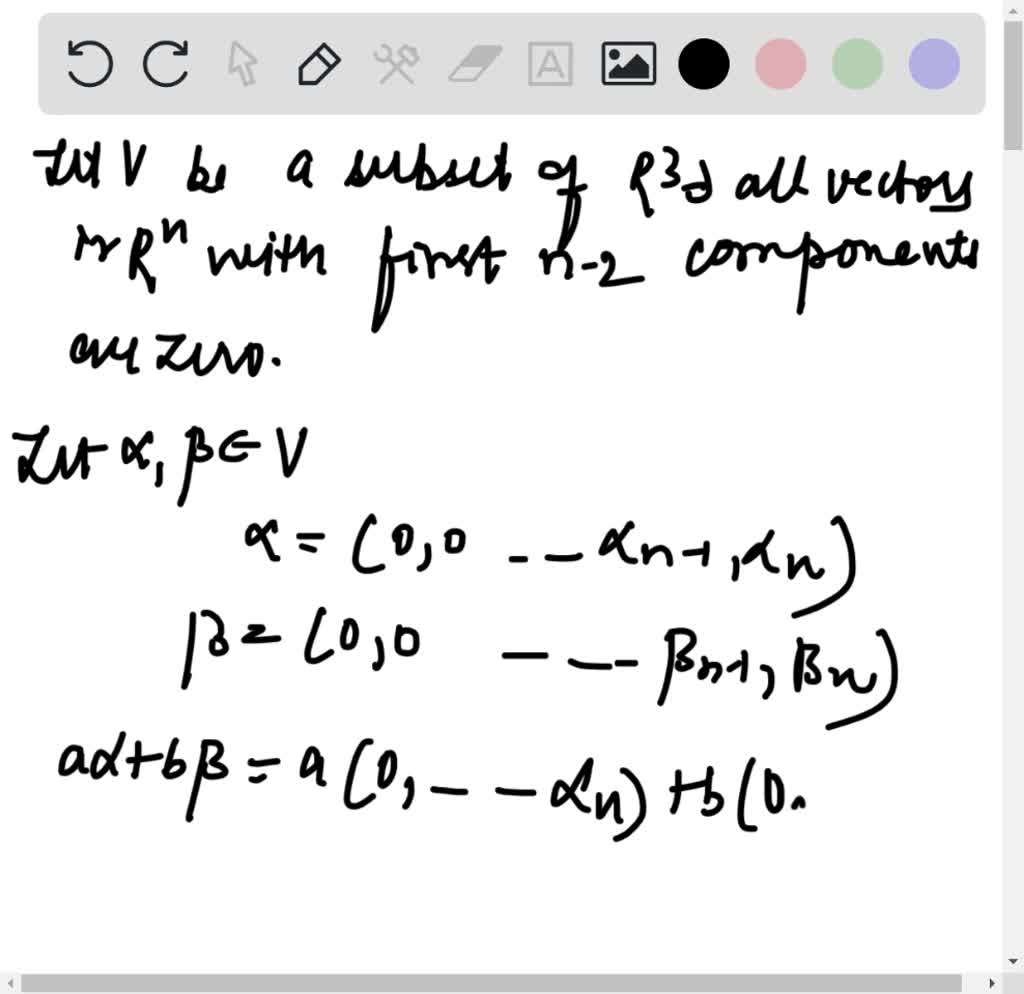 Let V be a subset of R3d all vectors
in Rⁿ with first n-2 components
are zero.
Let α, β ∈ V
α = (0,0 -- αn-1, αn)
β = (0,0 --- βn-1, βn)
aα+bβ = a(0, -- αn) +b(0.